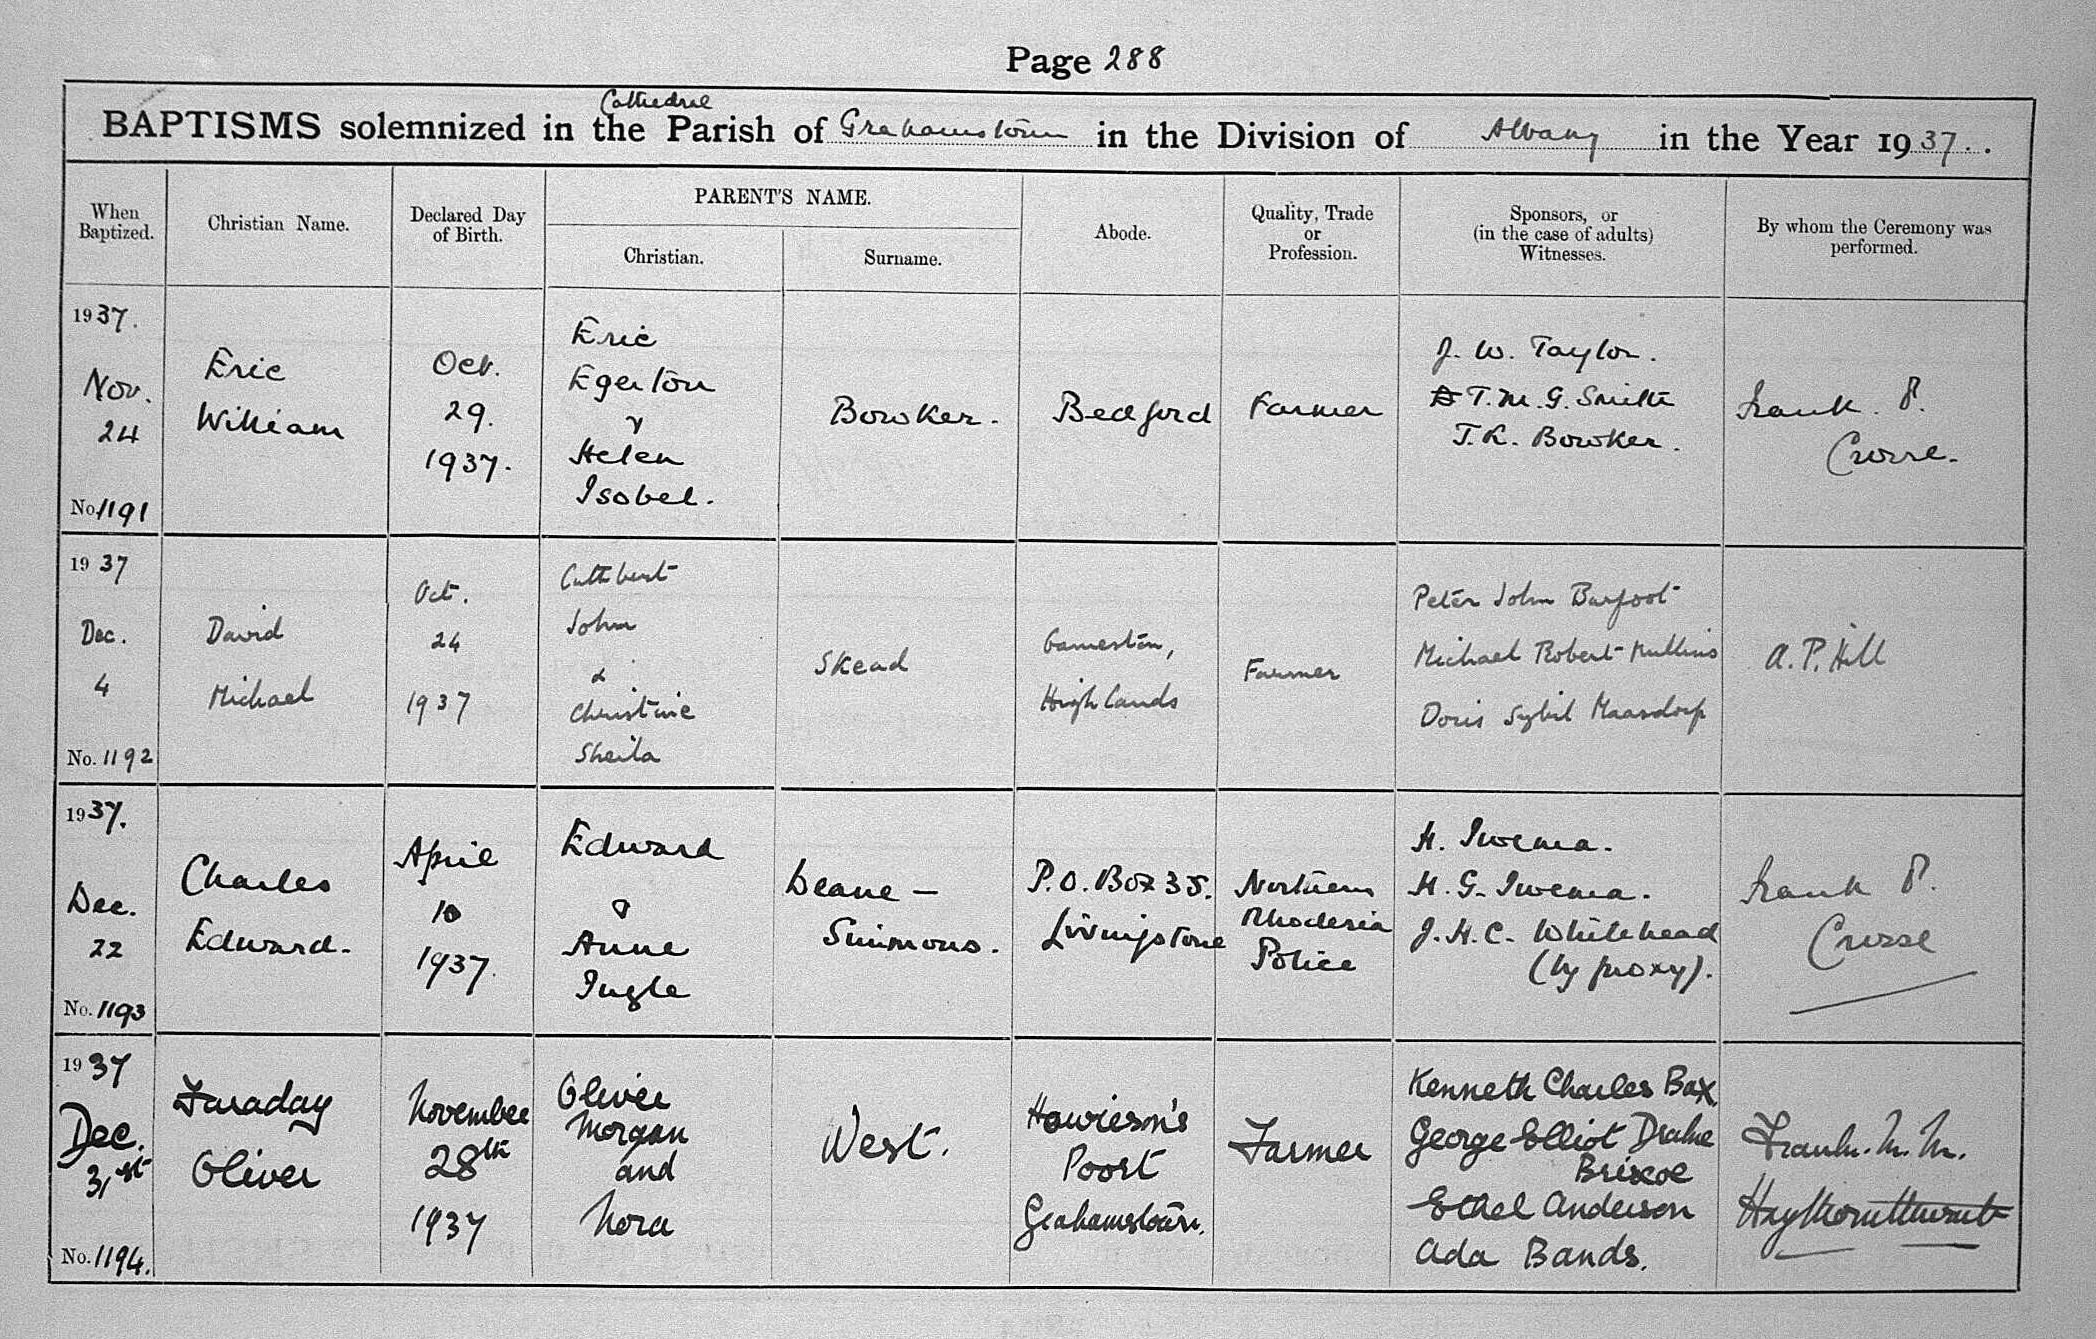 Page 288
Cathedral
BAPTISMS solemnized in the Parish of Grahamstown in the Division of Albany in the Year 1937.
When Baptized.
Christian Name.
Declared Day of Birth.
PARENT'S NAME.
Christian.
Surname.
Abode.
Quality, Trade or Profession.
Sponsors, or (in the case of adults) Witnesses.
By whom the Ceremony was performed.
1937.
Nov.
24
No. 1191
Eric
William
Oct.
29.
1937.
Eric
Egerton
&
Helen
Isobel.
Bowker.
Bedford
Farmer
J. W. Taylor.
T. M. G. Smith
T. K. Bowker.
Frank P.
Crosse.
1937
Dec.
4
No. 1192
David
Michael
Oct.
24
1937
Cuthbert
John
&
Christine
Sheila
Skead
Highlands
Farmer
Peter John Barfoot
Michael Robert Mullins
Doris Sybil Maasdorp
A. P. Hill
1937.
Dec.
22
No. 1193
Charles
Edward.
April
10
1937.
Edward
&
Anne
Ingle
Deane -
Simmons.
P.O. Box 35.
Livingstone
Northern
Rhodesia
Police
H. Iwema.
H. G. Iwema.
J. H. C. Whitehead
(by proxy).
Frank P.
Crosse
1937
Dec.
31st
No. 1194.
Faraday
Oliver
November
28th
1937
Oliver
Morgan
and
Nora
West.
Howieson's
Poort
Grahamstown.
Farmer
Kenneth Charles Bax.
George Elliot Drake
Briscoe
Ethel Anderson
Ada Bands.
Frank. M. M.
Haythornthwaite